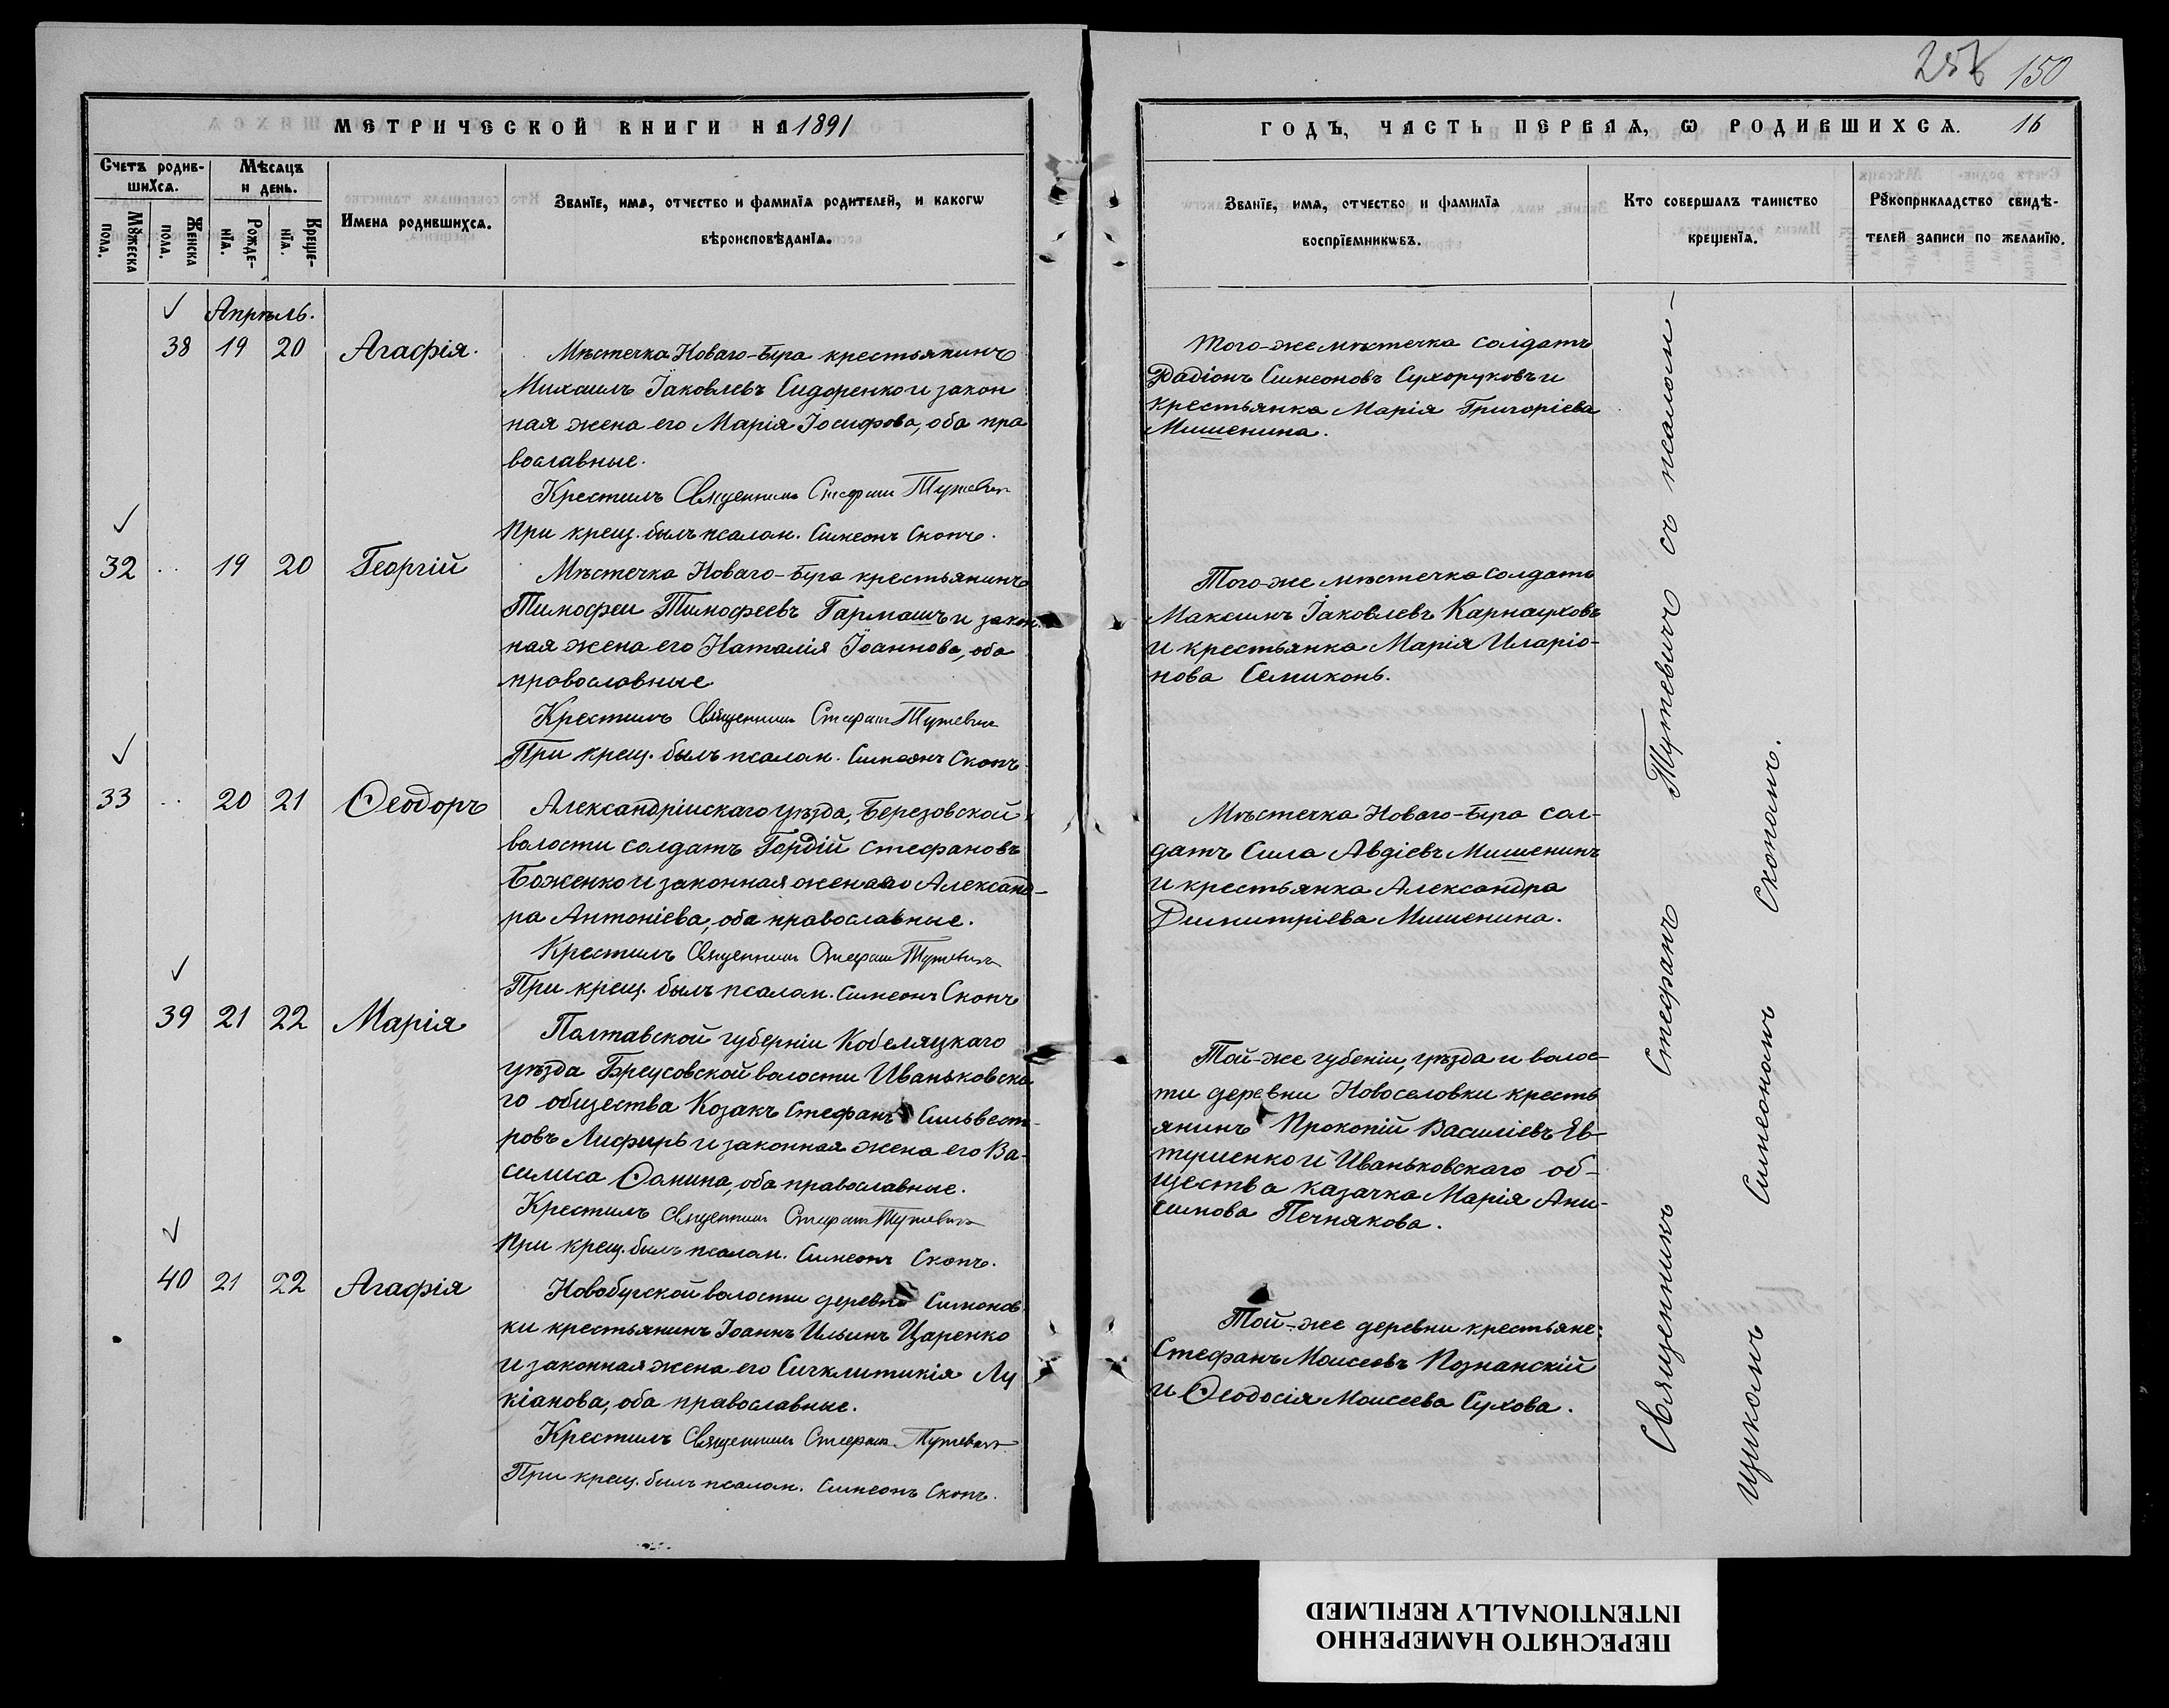 257 150
МЕТРИЧЕСКОЙ КНИГИ НА 1891
ГОДЪ, ЧАСТЬ ПЕРВАЯ, Ѡ РОДИВШИХСѦ. 16
Счетъ родив-
шихсѧ.
Мѣсѧцъ
и день.
Мꙋжеска
пола.
Женска
пола.
Рожде-
нїѧ.
Креще-
нїѧ.
Имена родившихсѧ.
Званїе, имѧ, отчество и фамилїѧ родителей, и какогѡ
вѣроисповѣданїѧ.
Званїе, имѧ, отчество и фамилїѧ
воспрїемникѡвъ.
Кто совершалъ таинство
крещенїѧ.
Рꙋкоприкладство свидѣ-
телей записи по желанїю.
Апрѣль.
38 19 20 Агафія.
Мѣстечка Новаго-Буга крестьянинъ
Михаилъ Іаковлевъ Сидоренко и закон
ная жена его Марія Іосифова, оба пра
вославные.
Крестилъ Священникъ Стефанъ Тутевичъ
При крещ. былъ псалом. Симеонъ Скопъ.
Того-же мѣстечка солдатъ
Радіонъ Симеоновъ Сухоруковъ и
крестьянка Марія Григоріева
Мишенина.
32 .. 19 20 Георгій
Мѣстечка Новаго-Буга крестьянинъ
Тимофеи Тимофеевъ Гармашъ и закон
ная жена его Наталія Іоаннова, оба
православные.
Крестилъ Священникъ Стефанъ Тутевичъ
При крещ. былъ псалом. Симеонъ Скопъ
Того-же мѣстечка солдатъ
Максимъ Іаковлевъ Карнауховъ
и крестьянка Марія Иларіо-
нова Семиконь.
33 .. 20 21 Ѳеодоръ
Александрійскаго уѣзда, Березовской
волости солдатъ Гордій Стефановъ
Боженко и законная жена его Александ-
ра Антоніева, оба православные.
Крестилъ Священникъ Стефанъ Тутевичъ
При крещ. былъ псалом. Симеонъ Скопъ
Мѣстечка Новаго-Буга сол-
датъ Сила Авдіевъ Мишенинъ
и крестьянка Александра
Димитріева Мишенина.
39 21 22 Марія
Полтавской губерніи Кобеляцкаго
уѣзда Бреусовской волости Иваньковска
го общества Козакъ Стефанъ Сильвест-
ровъ Лисфирь и законная жена его Ва-
силиса Ѳомина, оба православные.
Крестилъ Священникъ Стефанъ Тутевичъ
При крещ. былъ псалом. Симеонъ Скопъ.
Той-же губеніи, уѣзда и волос-
ти деревни Новоселовки кресть
янинъ Прокопій Василіевъ Ев-
тушенко и Иваньковскаго об-
щества казачка Марія Ани-
симова Печнякова.
40 21 22 Агафія
Новобугской волости деревни Симонов
ки крестьянинъ Іоаннъ Ильинъ Царенко
и законная жена его Сигклитикія Лу
кіанова, оба православные.
Крестилъ Священникъ Стефанъ Тутевичъ
При крещ. былъ псалом. Симеонъ Скопъ.
Той-же деревни крестьяне:
Стефанъ Моисеевъ Познанскій
и Ѳеодосія Моисеева Сухова.
Священникъ Стефанъ Тутевичъ съ псалом-
щикомъ Симеономъ Скопомъ.
ПЕРЕСНЯТО НАМЕРЕННО
INTENTIONALLY REFILMED